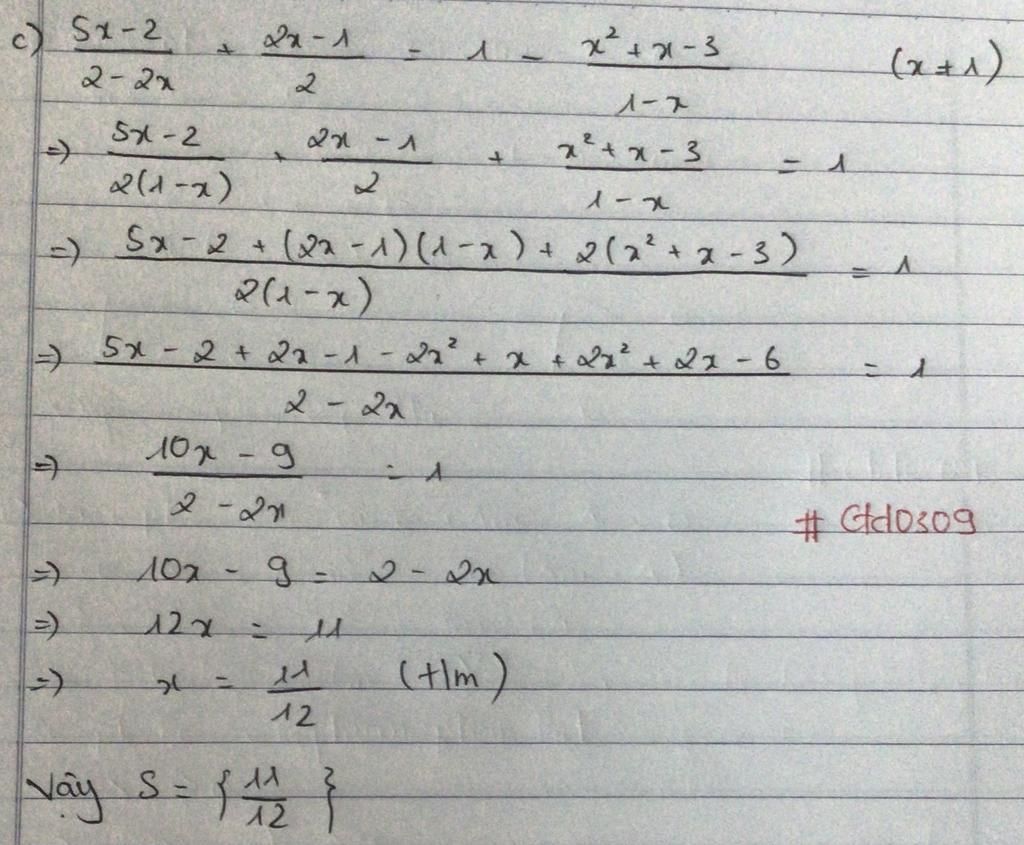 c) (5x - 2)/(2 - 2x) + (2x - 1)/2 = 1 - (x² + x - 3)/(1 - x) (x ≠ 1)
=) (5x - 2)/(2(1 - x)) + (2x - 1)/2 + (x² + x - 3)/(1 - x) = 1
=) (5x - 2 + (2x - 1)(1 - x) + 2(x² + x - 3))/(2(1 - x)) = 1
=) (5x - 2 + 2x - 1 - 2x² + x + 2x² + 2x - 6)/(2 - 2x) = 1
=) (10x - 9)/(2 - 2x) = 1
# Ctd0309
=) 10x - 9 = 2 - 2x
=) 12x = 11
=) x = 11/12 (t/m)
Vậy S = {11/12}